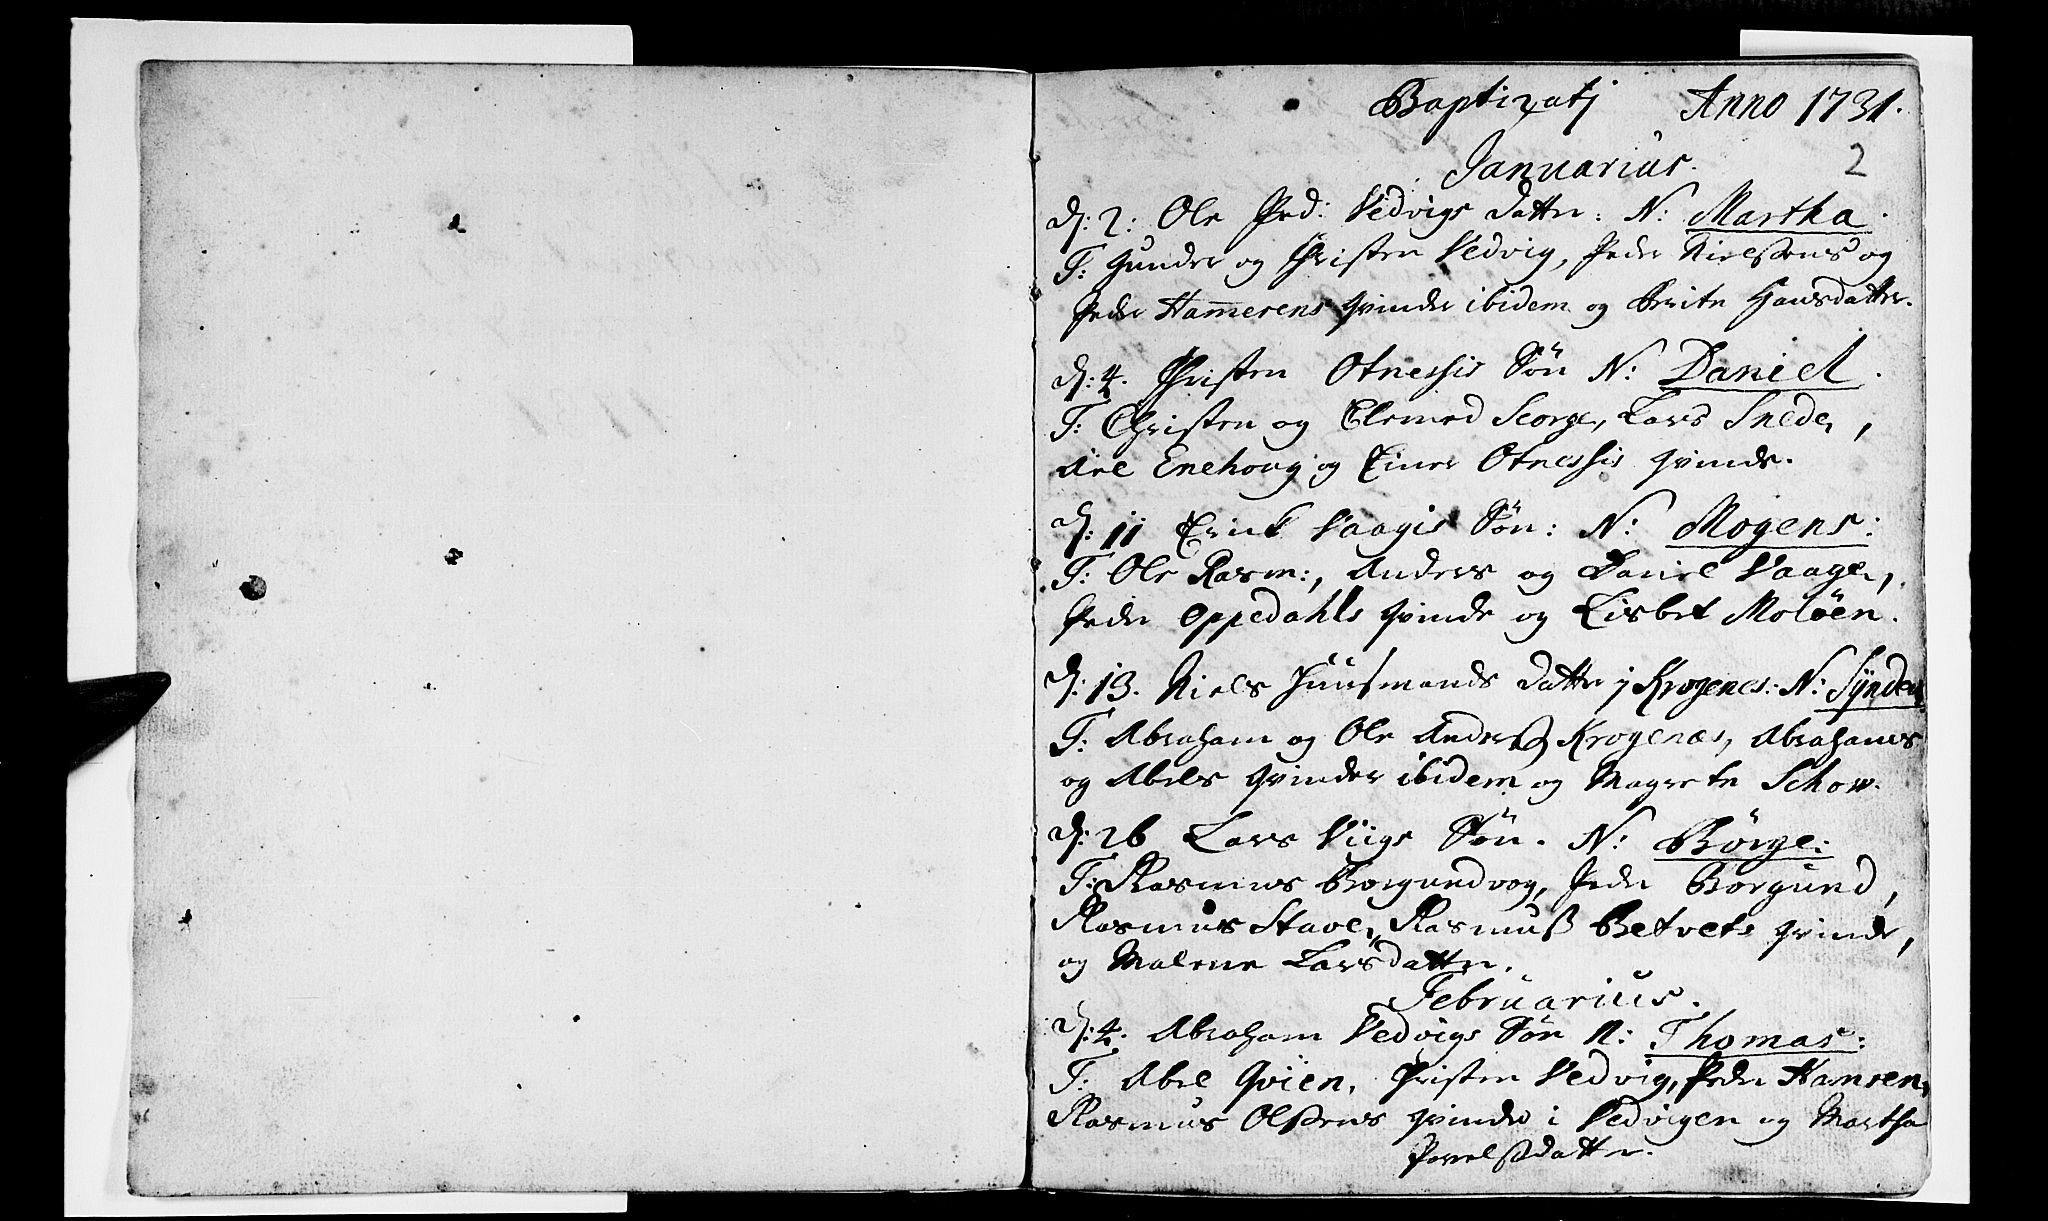 Baptizatj Anno 1731.
Januarius. 2
d: 2: Ole Ped: Vedvigs datter: N: Martha.
T: Gunder og Christen Vedvig, Peder Nielsens og
Peder Hamerens Qvinder ibidem og Brite Hansdatter.
d: 4. Christen Otnessis Søn N: Daniel.
T: Christen og Elemed Scorge, Lars Snede,
Abel Enehoug og Einer Otnessis Qvinde.
d: 11 Erick Vaagis Søn: N: Mogens:
T: Ole Rasm:, Anders og Daniel Vaage,
Peder Oppedahls Qvinde og Lisbet Moløen.
d: 13. Niels Huusmands datter j Krogenes: N: Synder
T: Abraham og Ole Anders Krogenæs, Abrahams
og Abels Qvinder ibidem og Magrete Schow.
d: 26 Lars Viigs Søn. N: Børge:
T: Rasmus Borgundvog, Peder Borgund,
Rasmus Stave, Rasmuß Betvets Qvinde,
og Malene Larsdatter.
Februarius.
d: 4. Abraham Vedvigs Søn N: Thomas:
T: Abel Qvien, Christen Vedvig, Peder Hamren,
Rasmus Olsens Qvinde i Vedvigen og Martha
Povelsdatter.